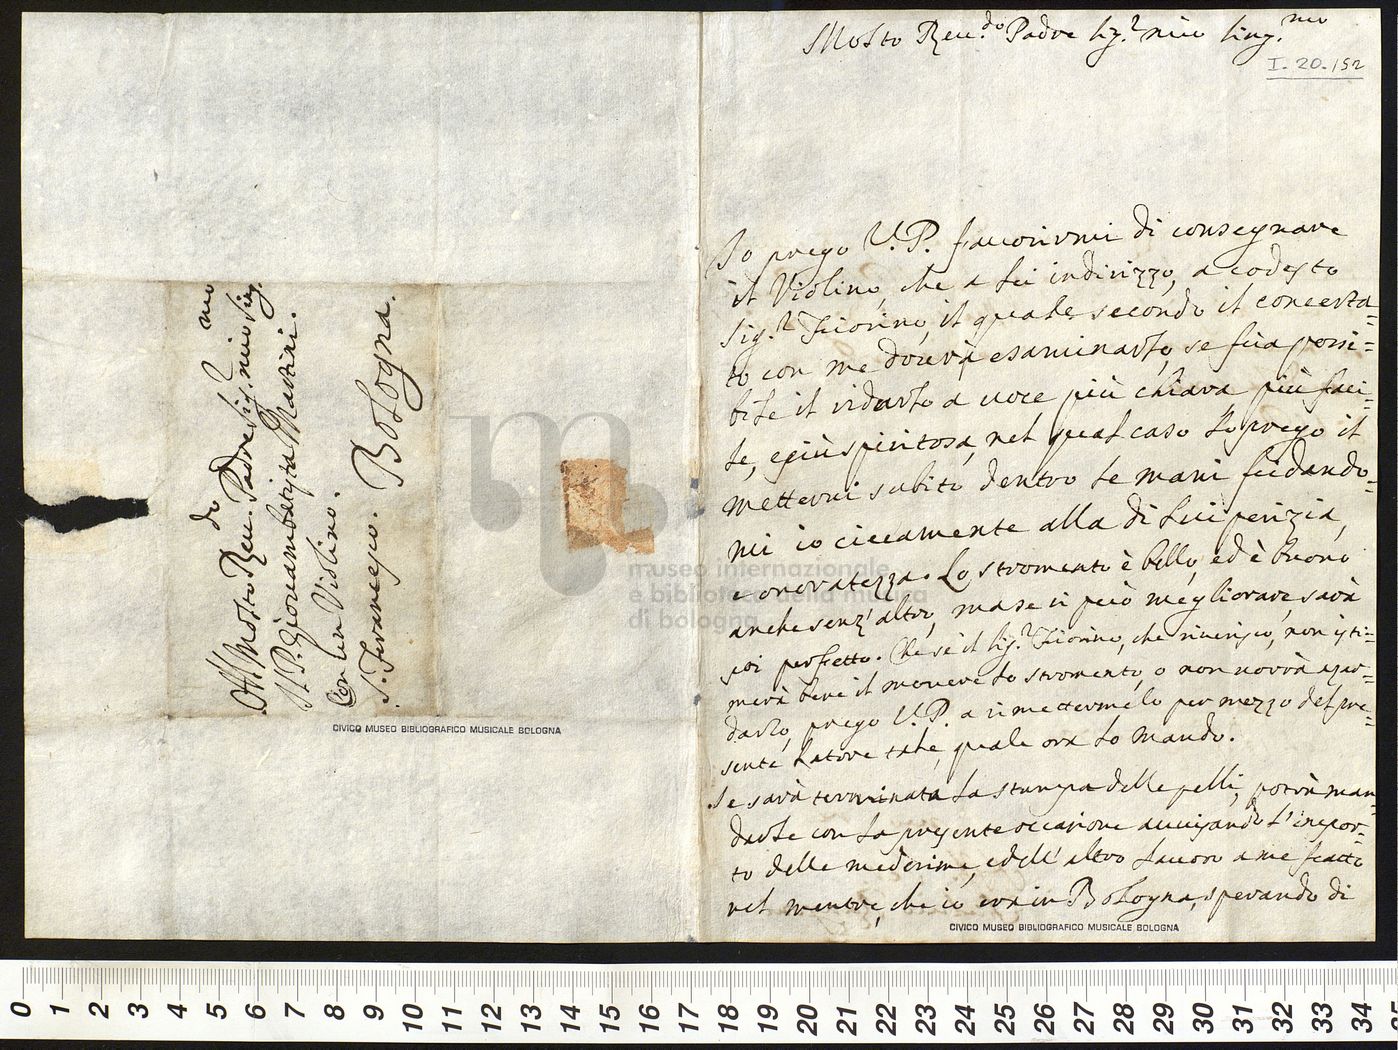 Al Molto Reu.do Padre Sig.r mio Sing.mo
Il P. Giovambatista Martini.
Con un Violino.
S. Francesco. Bologna.
CIVICO MUSEO BIBLIOGRAFICO MUSICALE BOLOGNA
museo internazionale
e biblioteca della musica
di bologna
Molto Reu.do Padre Sig.r mio Sing.mo
I. 20. 152
Io prego V. P. fauorirmi di consegnare
il Violino, che a Lei indirizzo, a codesto
Sig.r Fiorino, il quale secondo il concerta=
to con me dourà esaminarlo, se sia possi=
bile il ridurlo a uoce più chiara più faci=
le, e più spiritosa, nel qual caso Lo prego il
metterui subito dentro le mani fidando=
mi io ciecamente alla di Lui perizia,
e onoratezza. Lo stromento è bello, ed è buono
anche senz' altro, ma se si può megliorare, sarà
poi perfetto. Che se il Sig.r Fiorino, che riuerisco, non isti=
merà bene il mouere lo stromento, o non uorrà azar=
darlo, prego V. P. a rimettermelo per mezzo del pre=
sente Latore tale, quale ora lo mando.
Se sarà terminata la stampa delle pelli, potrà man=
darle con la presente occasione auuisando l'impor=
to delle medesime, e dell' altro lauoro a me fatto
nel mentre, che io era in Bologna, sperando di
CIVICO MUSEO BIBLIOGRAFICO MUSICALE BOLOGNA
0 1 2 3 4 5 6 7 8 9 10 11 12 13 14 15 16 17 18 19 20 21 22 23 24 25 26 27 28 29 30 31 32 33 34